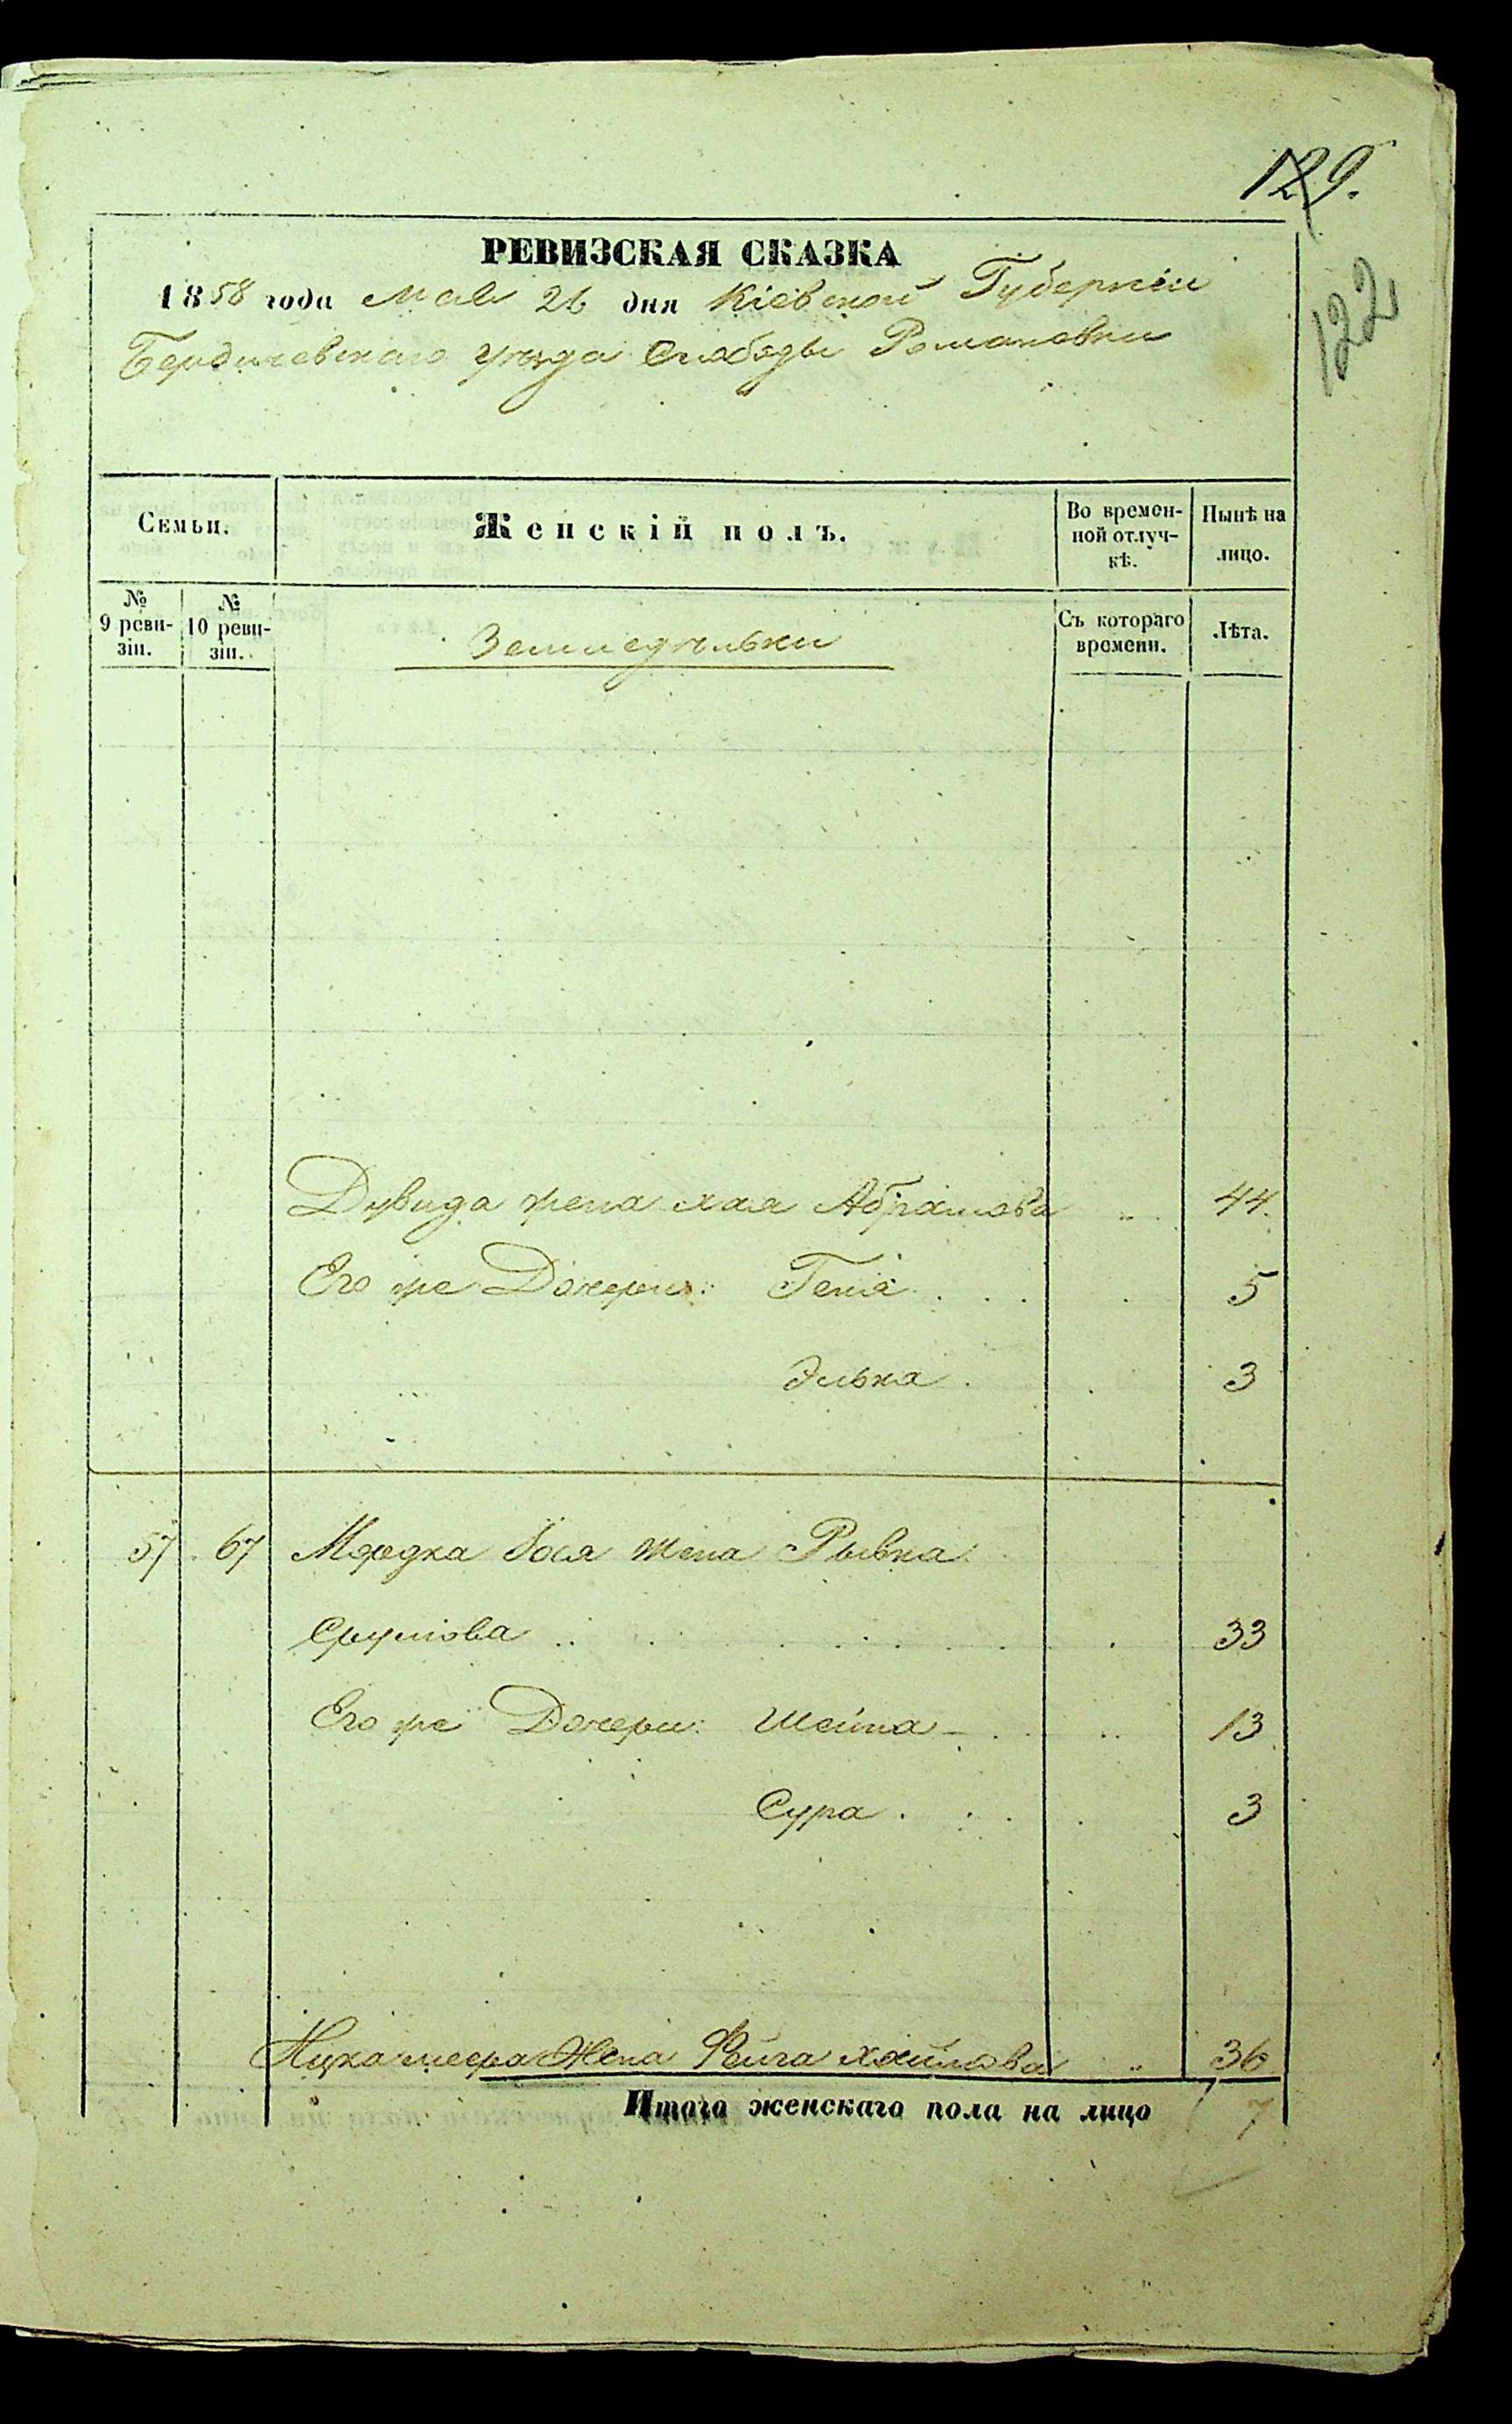 129.
122
РЕВИЗСКАЯ СКАЗКА
1858 года Мая 26 дня Кіевской Губерніи
Бердичевскаго уѣзда Слободы Романовки
Семьи.
Женскій полъ.
Во времен-
ной отлуч-
кѣ.
Нынѣ на
лицо.
№
9 реви-
зіи.
№
10 реви-
зіи.
Земледѣльки
Съ котораго
времени.
Лѣта.
Дувида жена хая Абрамова 44.
Его же Дочери: Геня 5
Элька 3
57 67 Мордка Жена Рывка
Срулова 33
Его же Дочери: Шейна 13
Сура 3
Жена Фейга хаимова 36
Итого женскаго пола на лицо 7